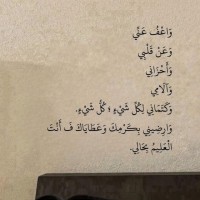 وَاعْفُ عَنِّي
وَعَنْ قَلْبِي
وَأَحْزَانِي
وَآلَامِي
وَكَتَمَانِي لِكُلِّ شَيْءٍ ؛ كُلُّ شَيْءٍ.
وَارضِينِي بِكَرَمِكَ وَعَطَايَاكَ فَ أَنْتَ
الْعَلِيمُ بِحَالِي.